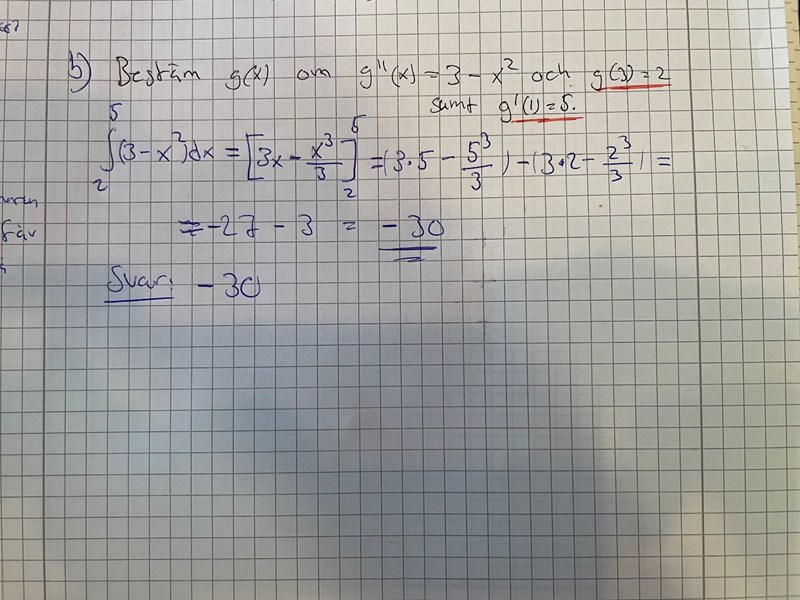 b) Bestäm g(x) om g''(x) = 3 - x² och g(3) = 2
samt g'(1) = 5.
∫₂⁵ (3 - x²)dx = [3x - x³/3]₂⁵ = (3·5 - 5³/3) - (3·2 - 2³/3) =
= -27 - 3 = -30
Svar: -30